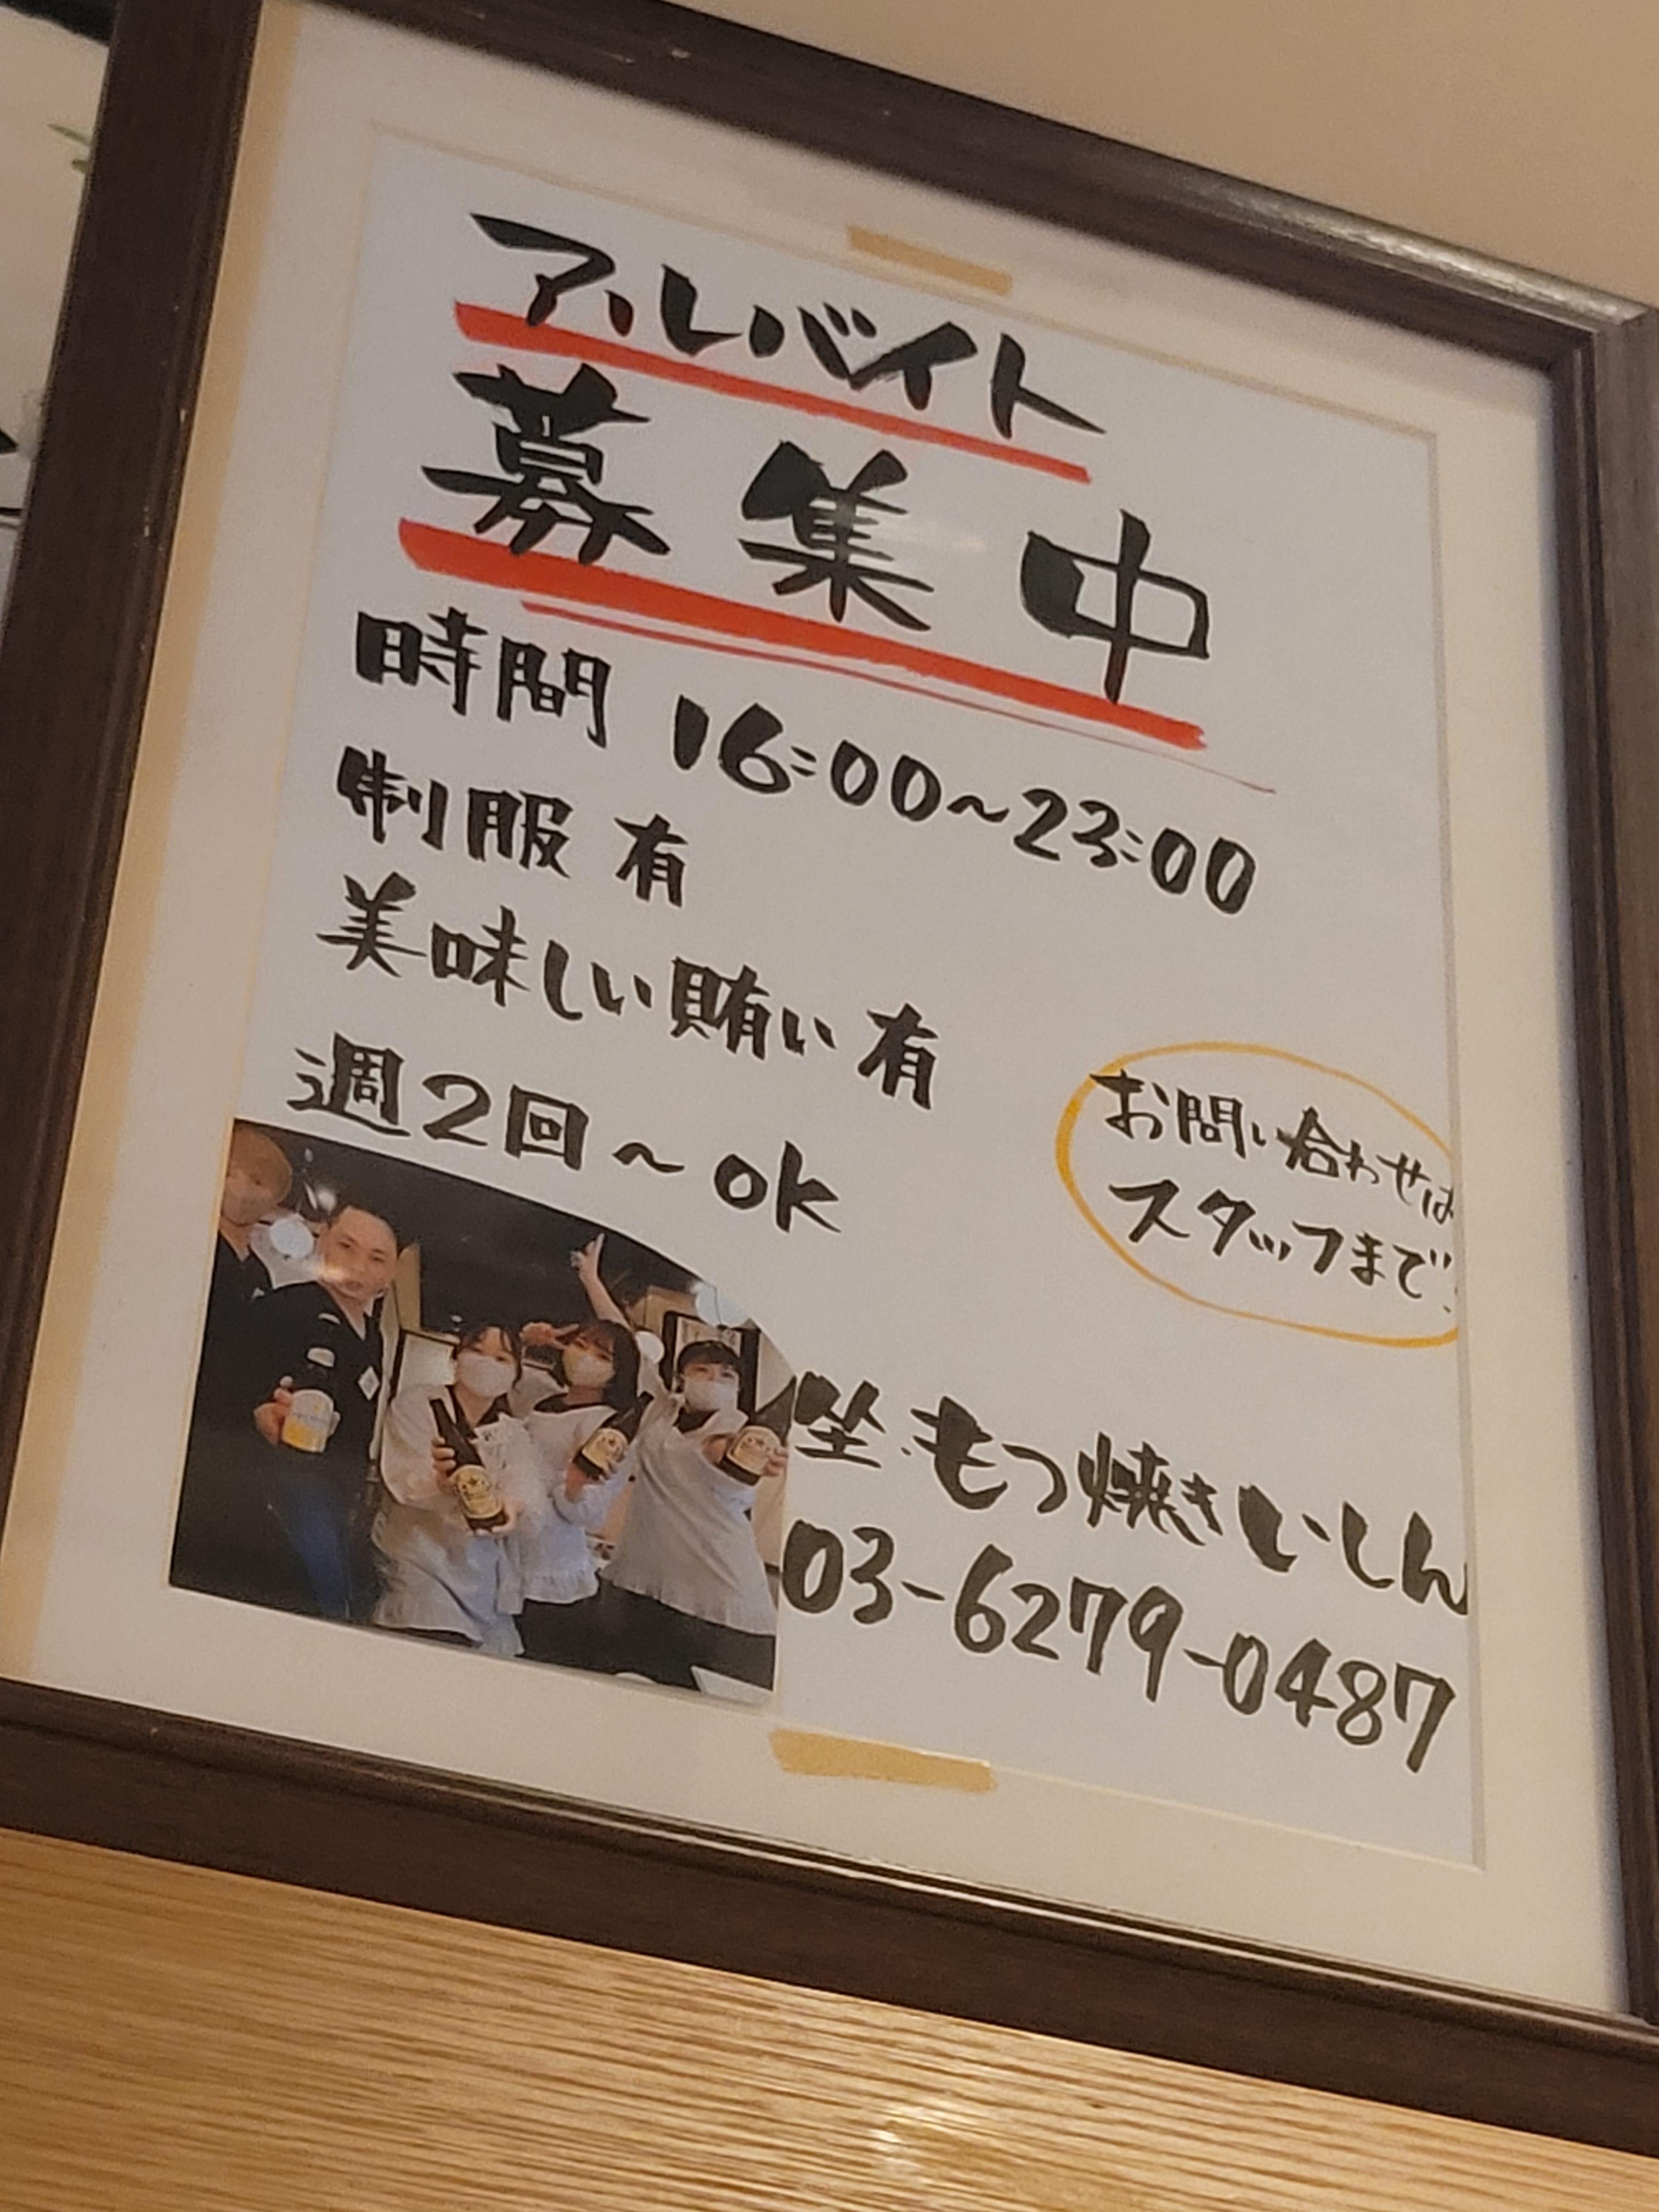 アルバイト
募集中
時間 16:00~23:00
制服 有
美味しい賄い有
週2回~OK
お問い合わせは
スタッフまで!
もつ焼きいしん
03-6279-0487